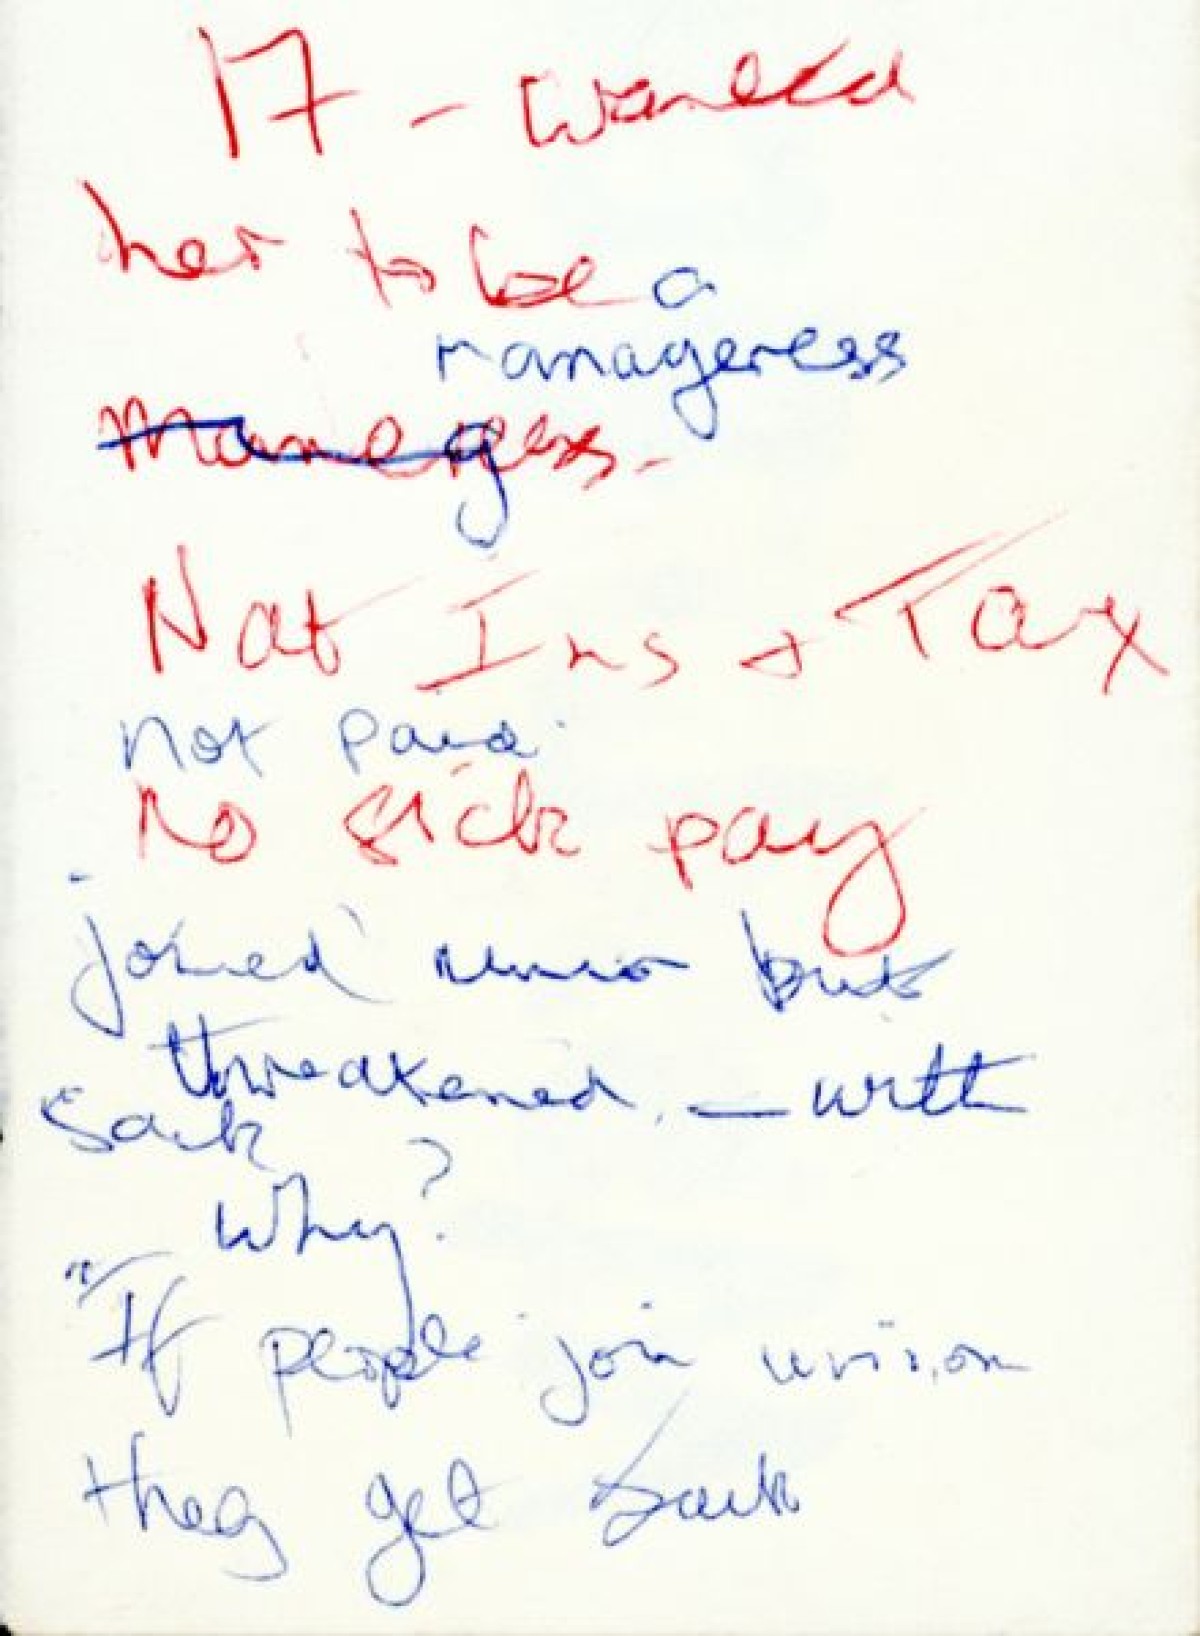 17 - wanted
her to be a
manageress
manegress -
Nat Ins + Tax
not paid.
No sick pay
joined union but
threatened, - with
sack
why?
"If people join union
they get sack